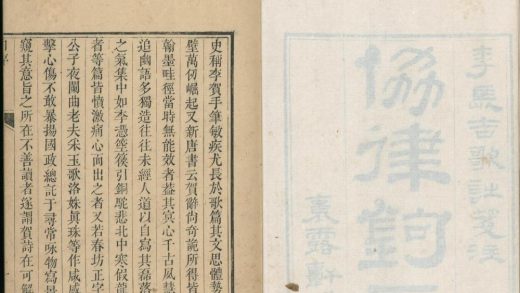 李長吉歌
協律鉤
露軒
史稱李賀手筆敏疾尤長於歌篇其文思體勢
壁萬仞崛起又新唐書云賀辭尚奇詭所得皆
翰墨畦徑當時無能效者蓋其冥心千古夙慧
追幽語多獨造往往未經人道以自寫其磊落
之氣集中如李憑箜篌引銅駝悲北中寒假龍
者等篇皆憤激痛心而出之者又若春坊正字
公子夜闌曲老夫采玉歌洛姝眞珠等作咸感
擊心傷不敢暴揚國政總託于尋常咏物寫景
窺其意旨之所在不善讀者遂謂賀詩在可解